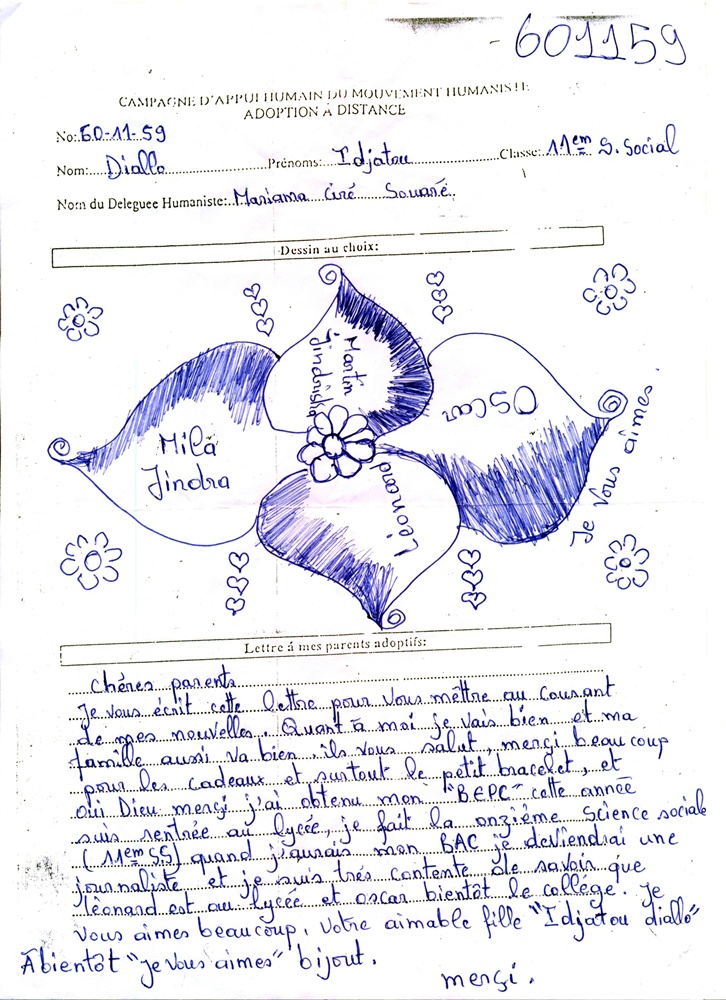 - 601159
CAMPAGNE D'APPUI HUMAIN DU MOUVEMENT HUMANISTE
ADOPTION À DISTANCE
No: 60-11-59
Nom: Diallo Prénoms: Idjatou Classe: 11em S. Social
Nom du Deleguee Humaniste: Mariama Ciré Souaré
Dessin au choix:
Martin
Jindriska
Oscar
Milă
Jindra
Léonard
Je Vous aimes.
Lettre á mes parents adoptifs:
Chéres parents
Je vous écrit cette lettre pour vous mêttre au courant
de mes nouvelles. Quant à moi je vais bien et ma
famille aussi va bien, ils vous salut, merçi beaucoup
pour les cadeaux et surtout le petit bracelet, et
oui Dieu merçi j'ai obtenu mon "B.E.P.C" cette année
suis rentrée au lycée, je fait la onziéme Science sociale
(11em SS) quand j'aurais mon BAC je deviendrai une
journaliste et je suis trés contente de savoir que
léonard est au lycée et oscar bientôt le collége. Je
vous aimes beaucoup, votre aimable fille "Idjatou diallo"
Àbientôt "je vous aimes" bijout.
merçi.